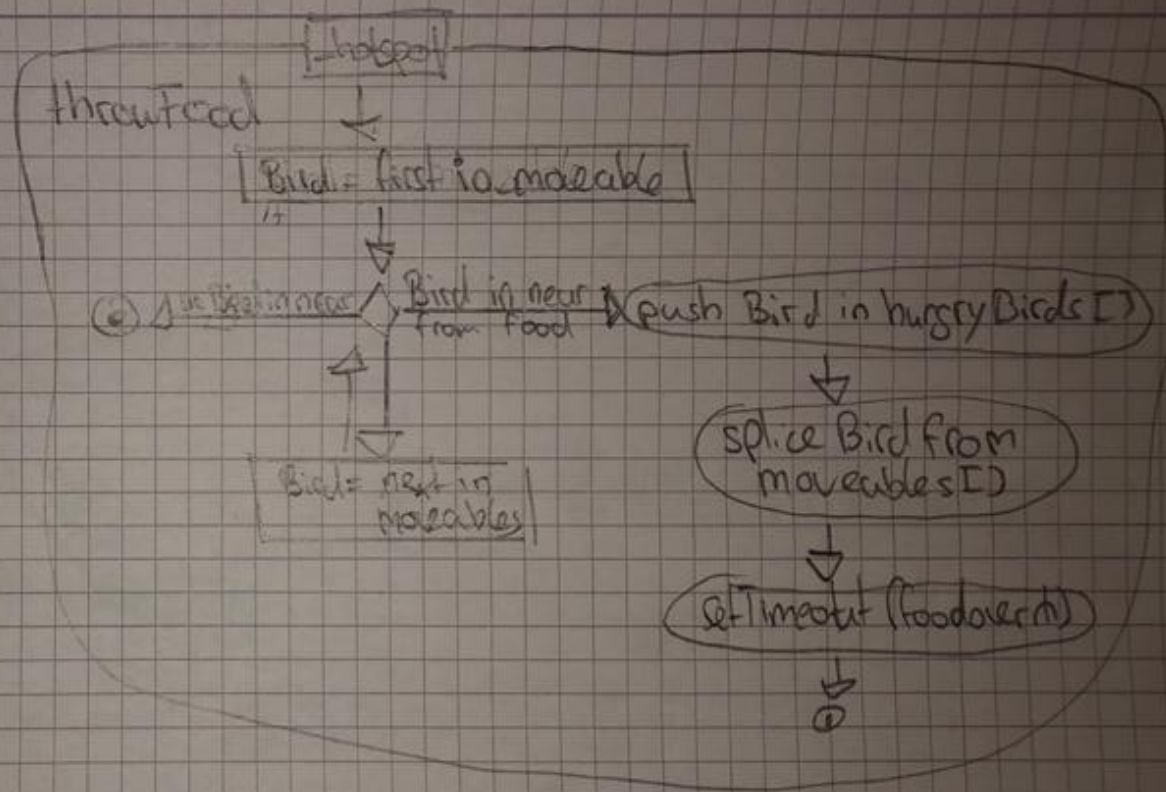 hotspot
throwFood
Bird = first io_moveable
Bird in near
Bird in near
from food
push Bird in hungryBirds[]
splice Bird from
moveables[]
Bird = next in
moveables
setTimeout (foodover